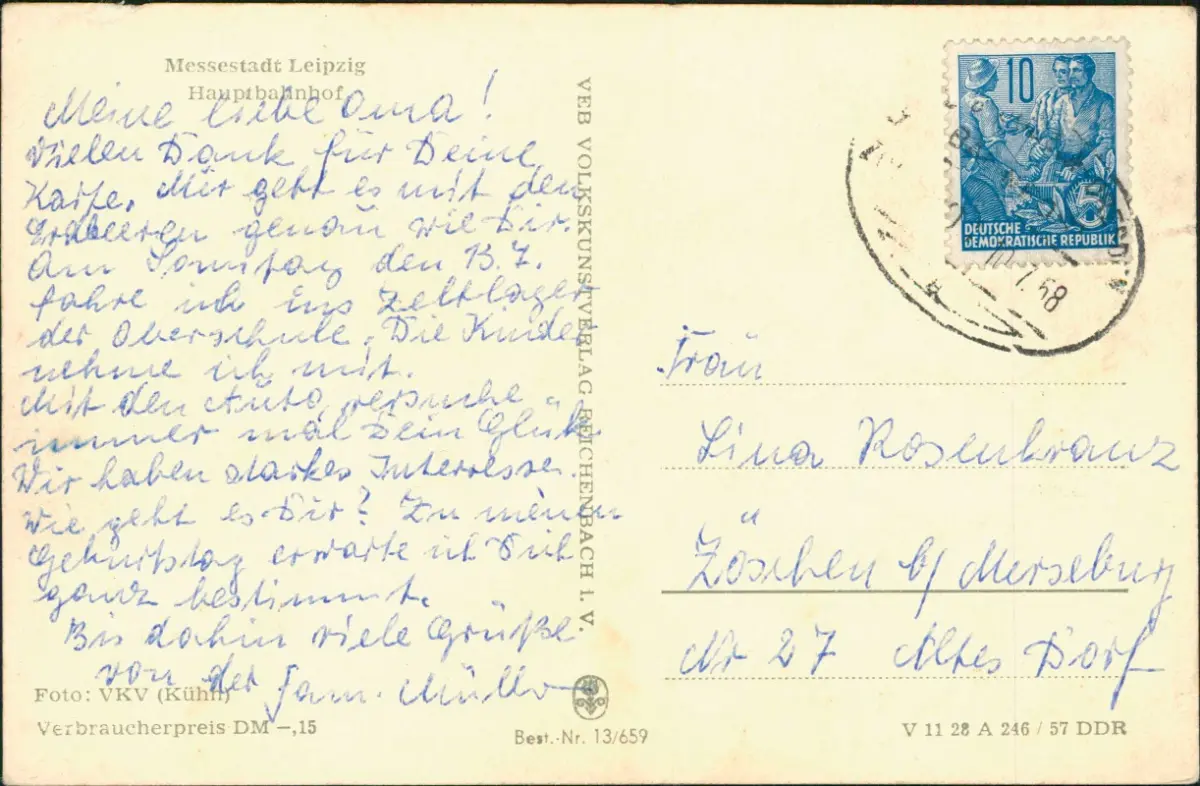 Messestadt Leipzig
Hauptbahnhof
Meine liebe Oma!
Vielen Dank für Deine
Karte. Mir geht es mit den
Erdbeeren genau wie Dir.
Am Sonntag den 13.7.
fahre ich ins Zeltlager
der Oberschule. Die Kinder
nehme ich mit.
Mit den Auto versuche
immer mal Dein Glück.
Wir haben starkes Interresse.
Wie geht es Dir? Zu meinen
Geburtstag erwarte ich Dich
ganz bestimmt.
Bis dahin viele Grüße
von der Fam. Müller
Foto: VKV (Kühn)
Verbraucherpreis DM –,15
VEB VOLKSKUNSTVERLAG REICHENBACH I. V.
Best.-Nr. 13/659
10
5
DEUTSCHE
DEMOKRATISCHE REPUBLIK
7.58
Frau
Lina Rosenkranz
Zöschen b/ Merseburg
Nr 27 Altes Dorf
V 11 28 A 246 / 57 DDR